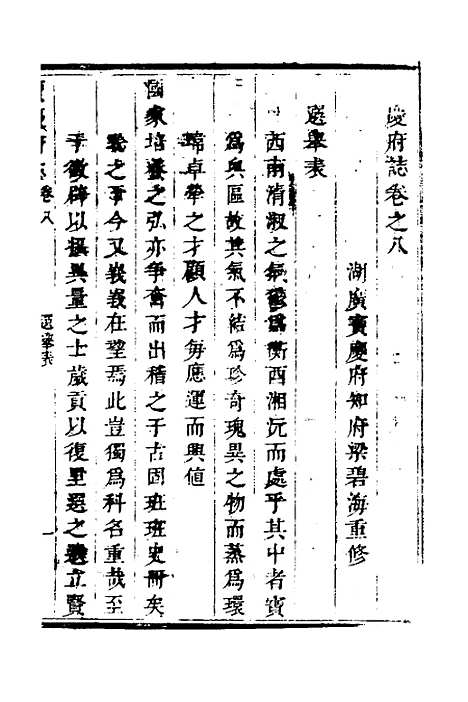 慶府誌卷之八
湖廣寶慶府知府梁碧海重修
選舉表
西南清淑之氣 為衡西湘沅而處乎其中者寶
為輿區故其氣不結為珍奇瑰異之物而蒸為環
琦卓犖之才顧人才每應運而興值
國家培養之弘亦爭奮而出稽之于古固班班史冊矣
之于今又莪莪在望焉此豈獨為科名重哉至
于徵辟以振異量之士歲貢以復里選之 立賢
慶府志卷八
選舉表
一